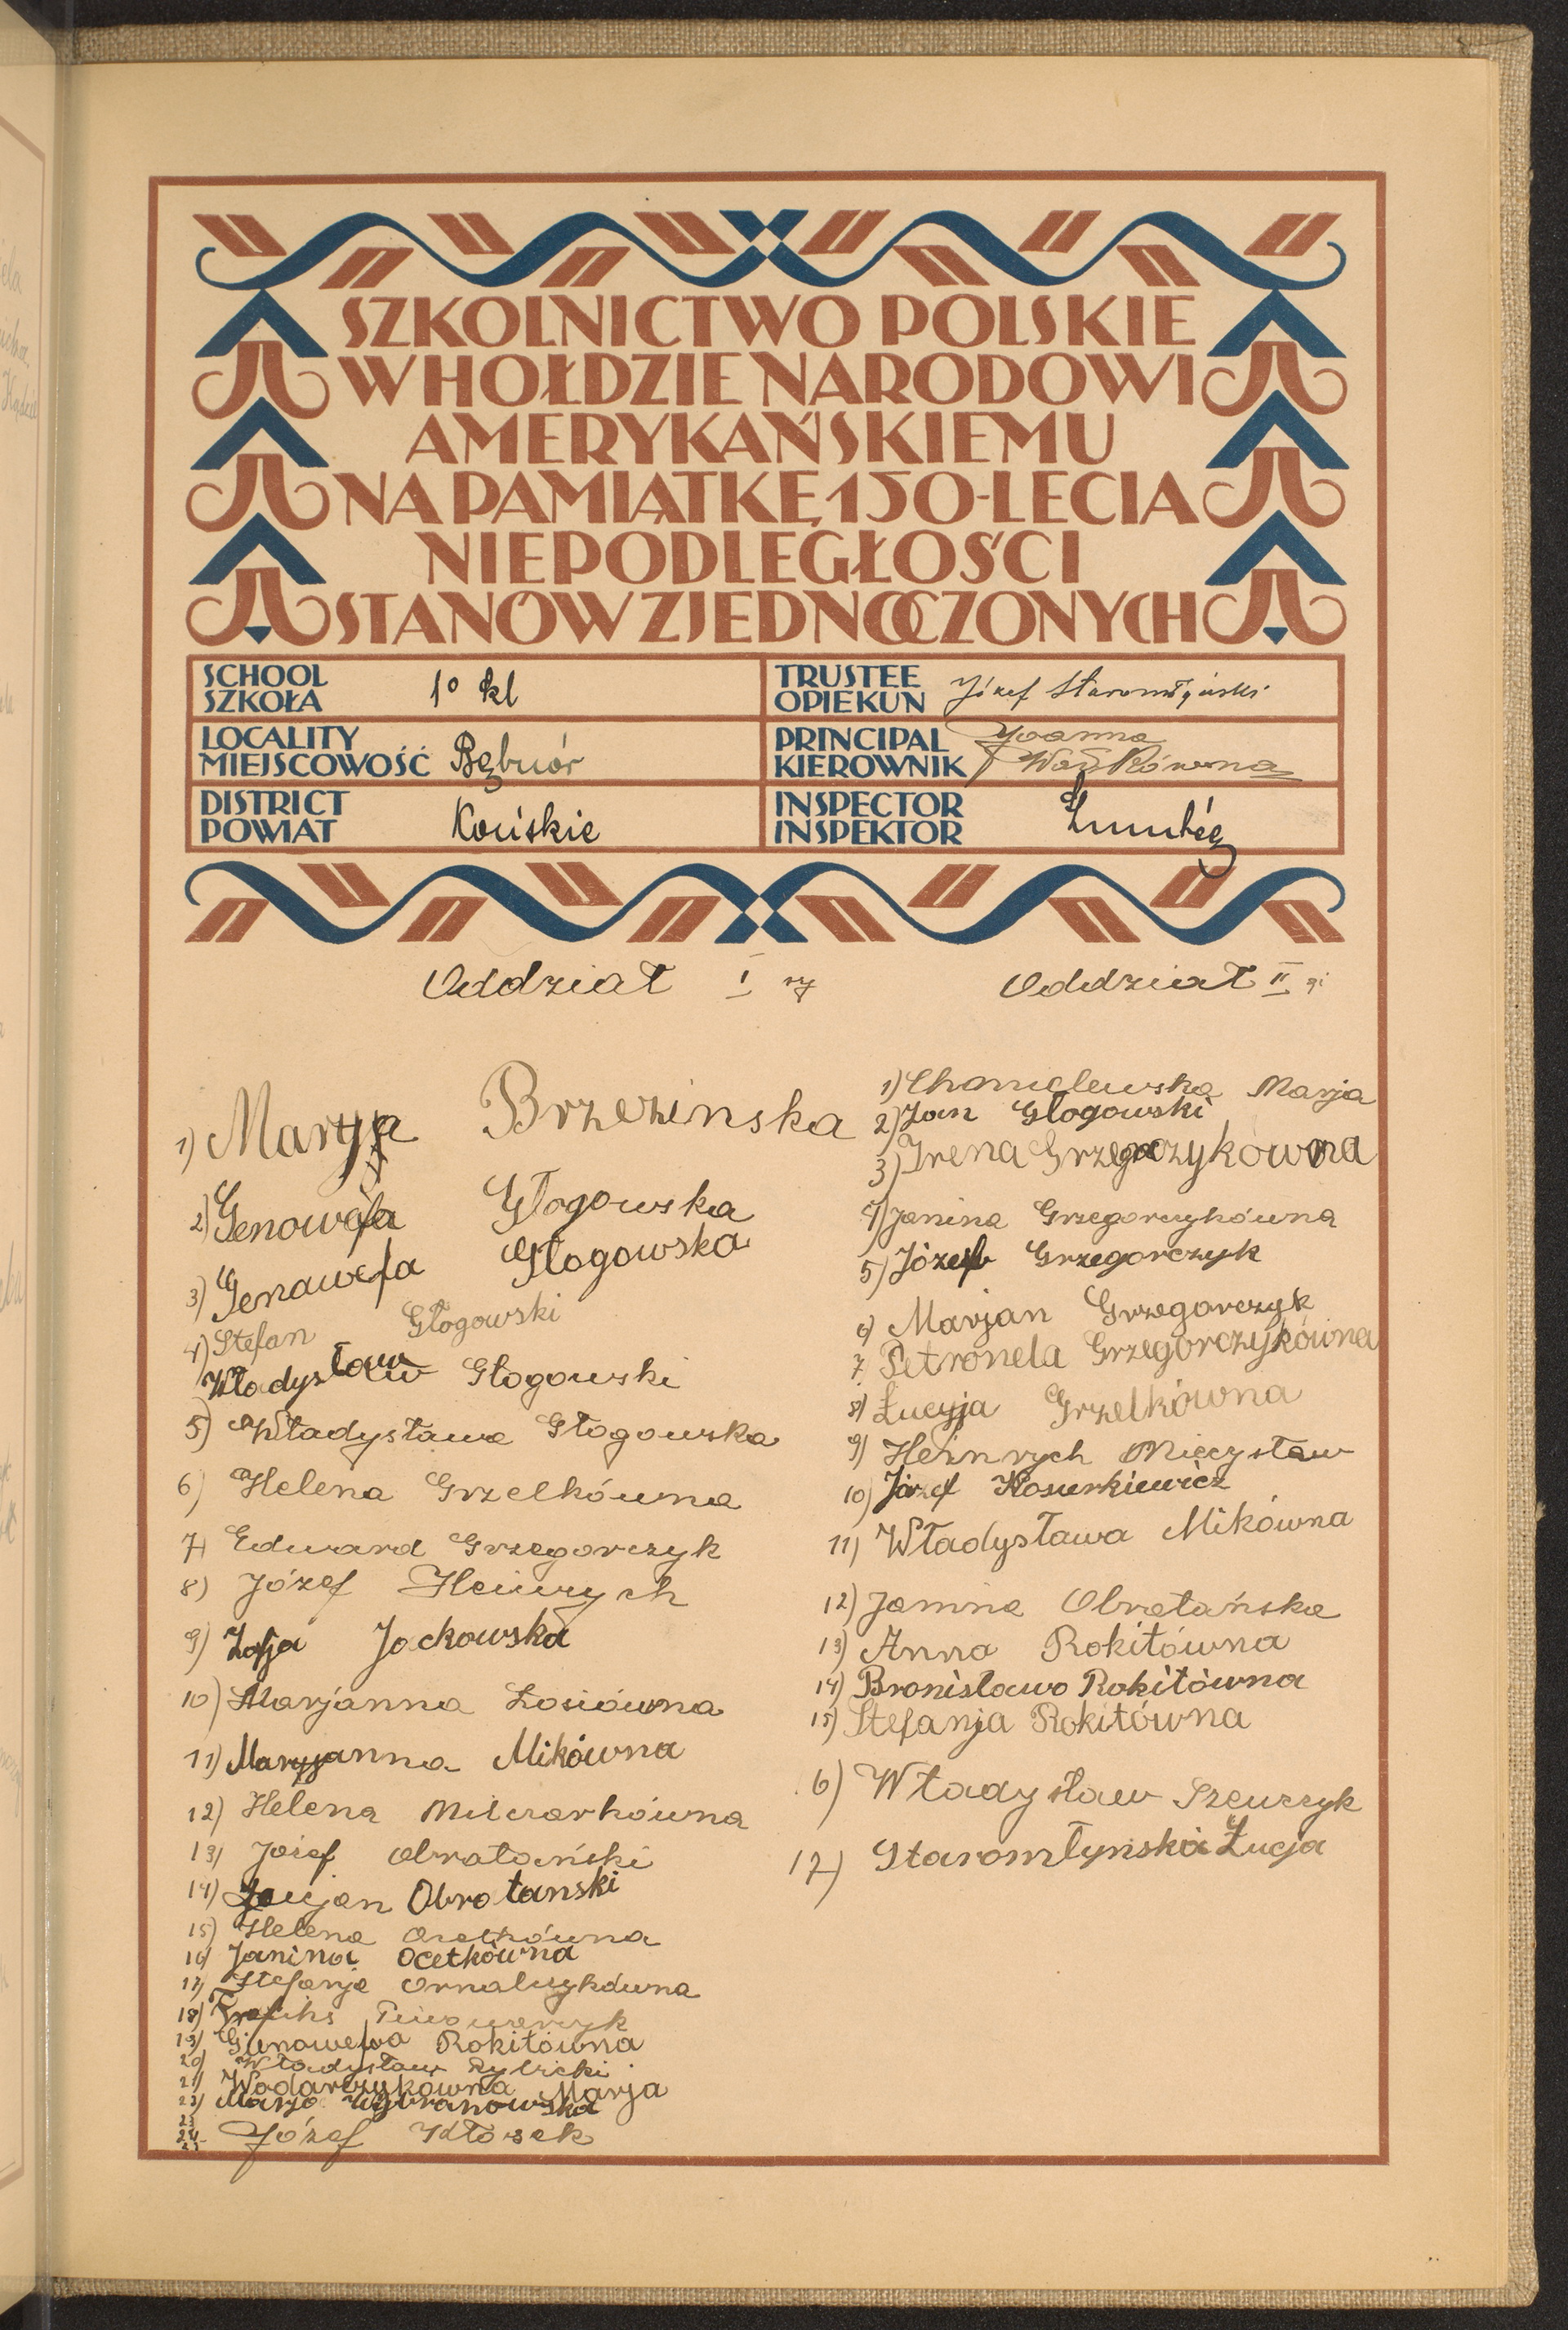 SZKOLNICTWO POLSKIE
W HOŁDZIE NARODOWI
AMERYKAŃSKIEMU
NA PAMIĄTKĘ 150-LECIA
NIEPODLEGŁOŚCI
STANÓW ZJEDNOCZONYCH
SCHOOL
SZKOŁA 1º kl
TRUSTEE
OPIEKUN Józef Staromłyński
LOCALITY
MIEJSCOWOŚĆ
PRINCIPAL
KIEROWNIK Joanna
DISTRICT
POWIAT Końskie
INSPECTOR
INSPEKTOR
Oddział I szy
1) Maryja Brzezinska
2) Genowefa Głogowska
3) Genawefa Głogowska
4) Stefan Głogowski
Władysław Głogowski
5) Władysława Głogowska
6) Helena Grzelkówna
7) Edward Grzegorczyk
8) Józef Heinrych
9) Zofja Jackowska
10) Marjanna Łosiówna
11) Maryjanna Mikówna
12) Helena
13) Józef Obratański
14) Lucjan Obratanski
15) Helena Ocetkówna
16) Janina Ocetkówna
17) Stefanja
18)
19) Rokitówna
20) Władysław Rybicki
21) Wodarczykówna Marja
22) Marja Wybranowska
23
24
25 Józef Kłosek
Oddział II gi
1) Chomelewska Marja
2) Jan Głogowski
3) Irena Grzegorzykówna
4) Janina Grzegorczykówna
5) Józef Grzegorczyk
6) Marjan Grzegorczyk
7 Petronela Grzegorczykówna
8) Łucyja Grzelkówna
9) Heinrych Mieczysław
10) Józef Kosurkiewicz
11) Władysława Mikówna
12) Janina Obratańska
13) Anna Rokitówna
14) Bronisława Rokitówna
15) Stefanja Rokitówna
6) Władysław Szewczyk
17) Staromłyńska Łucja